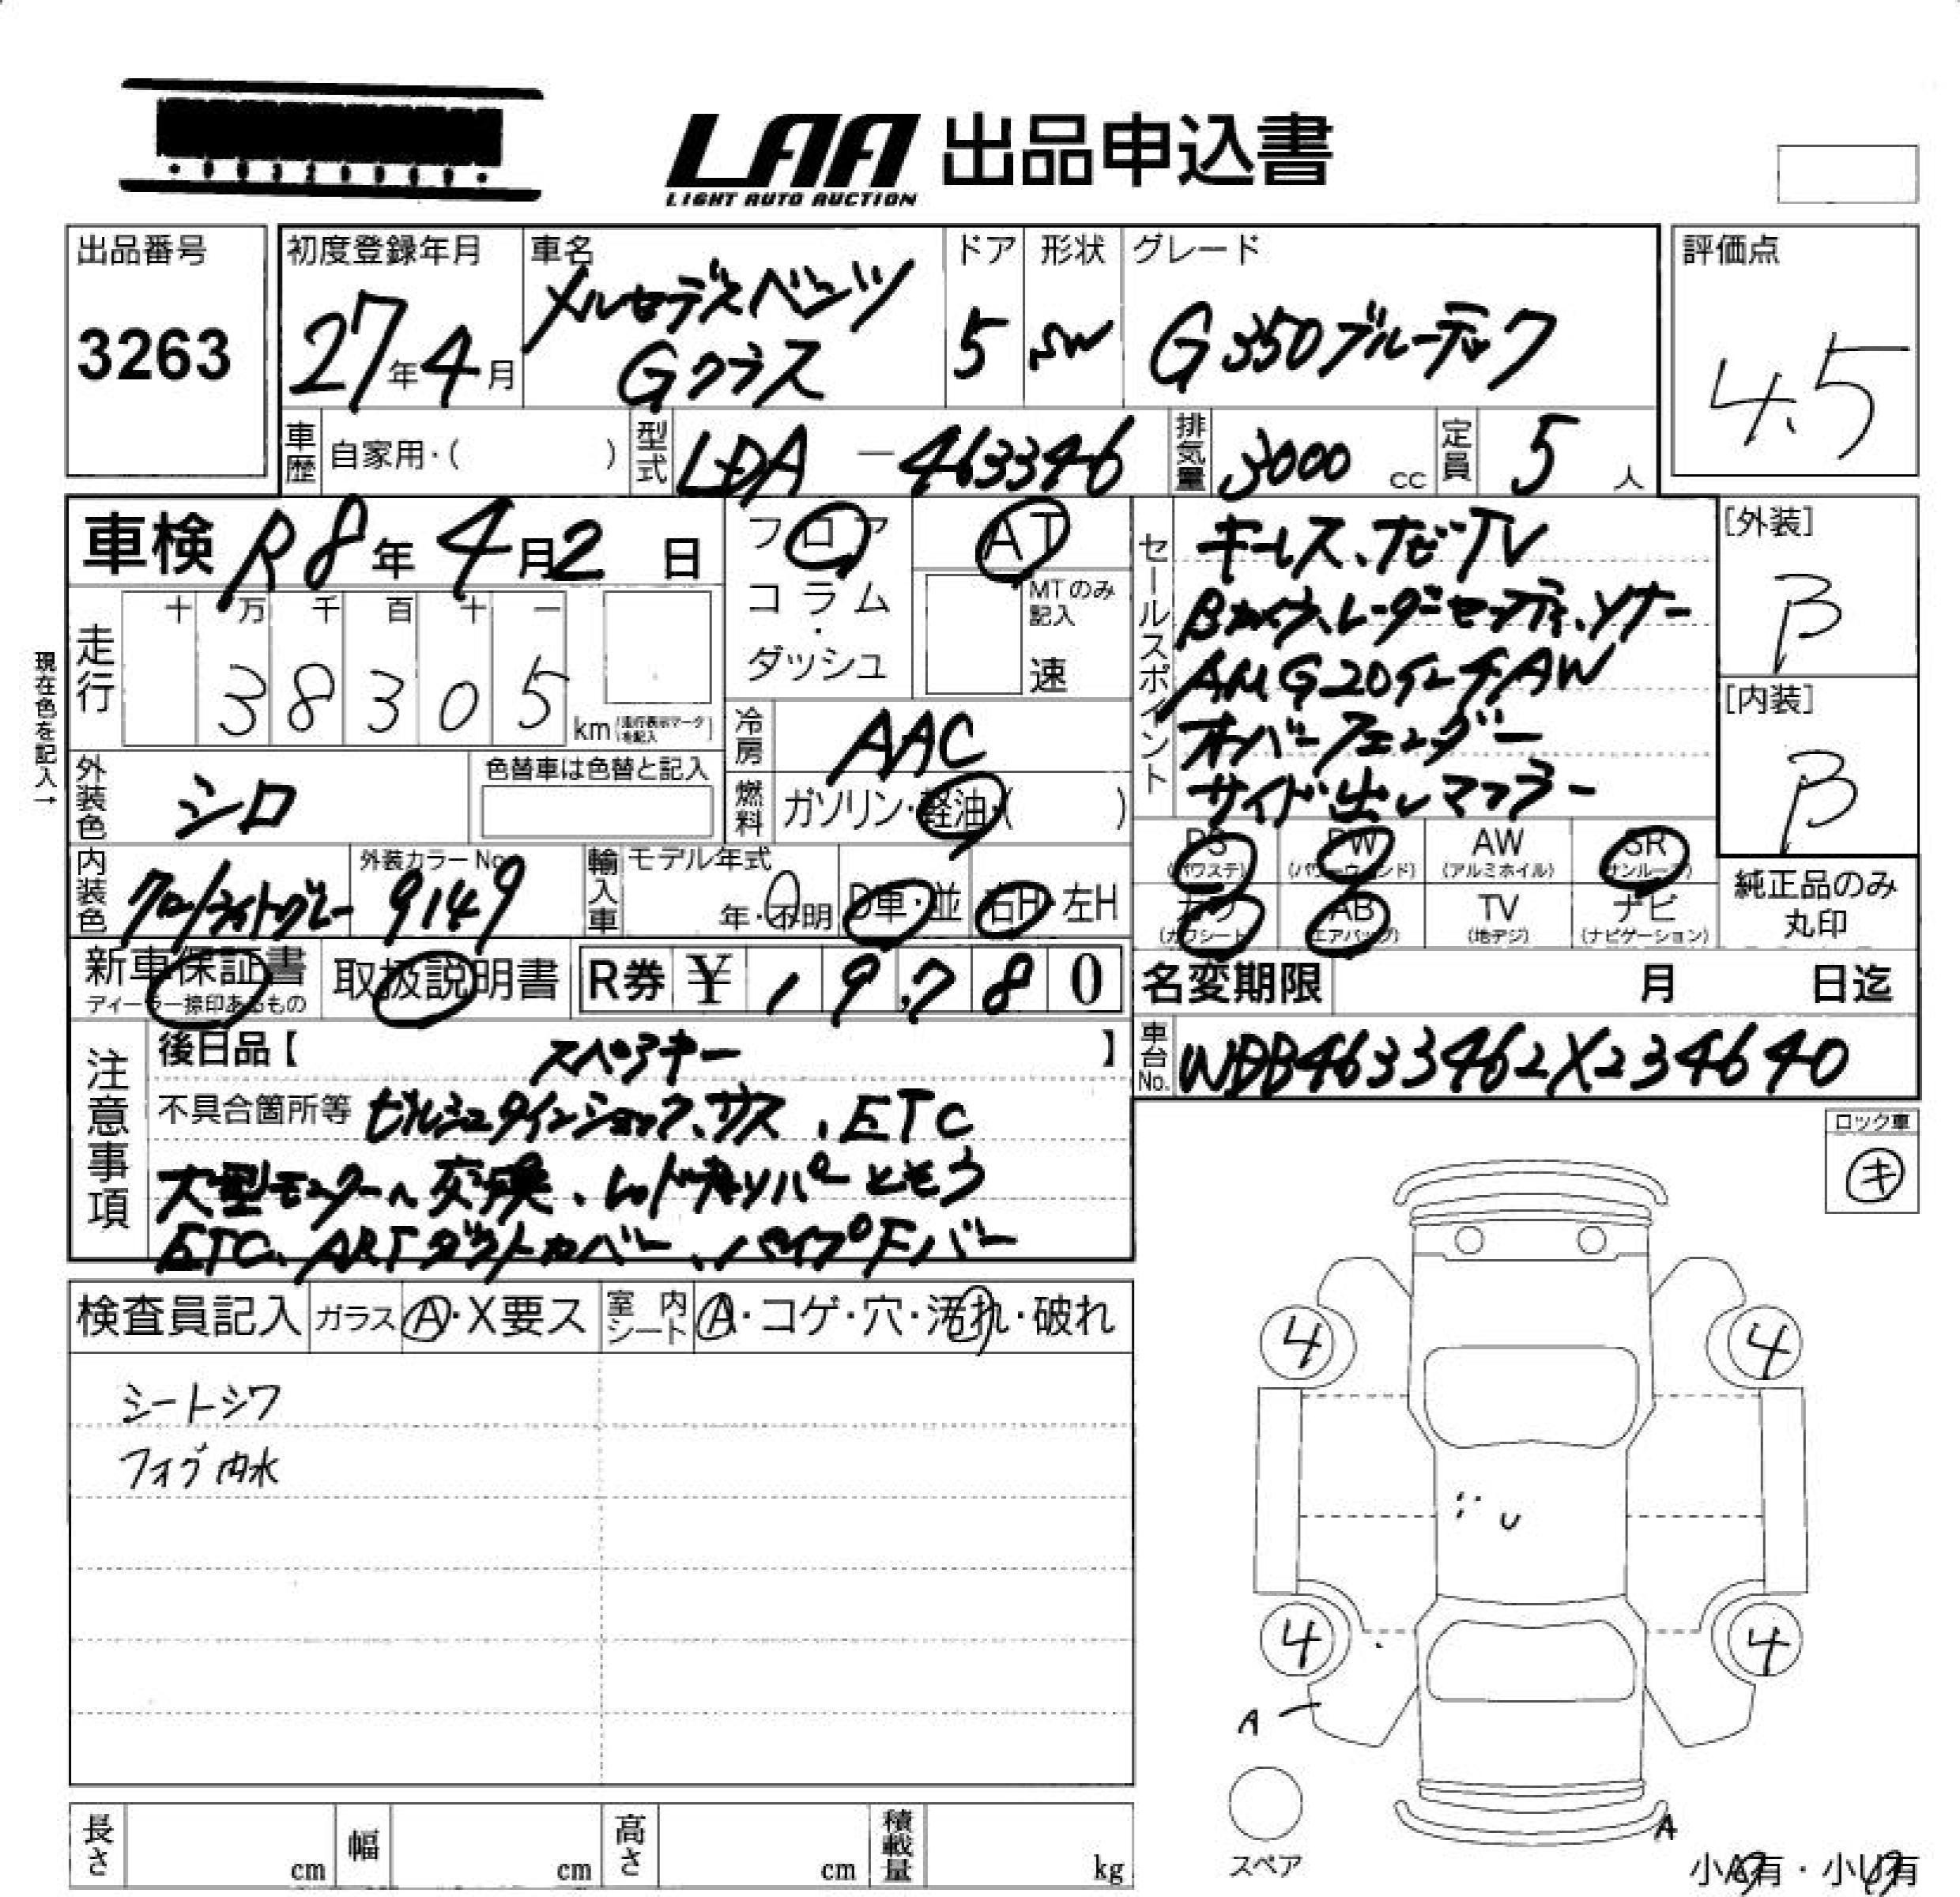 LAA 出品申込書
LIGHT AUTO AUCTION
出品番号
3263
初度登録年月
27年4月
車名
メルセデスベンツ
Gクラス
ドア
5
形状
SW
グレード
G350ブルーテック
評価点
4.5
車歴 自家用・( )
型式 LDA-463346
排気量 3000 cc
定員 5 人
車検 R8年4月2日
フロア
コラム
・
ダッシュ
AT
MTのみ
記入
速
セールスポイント
キーレス、ナビTV
Bカメラ、レーダーセーフティ、ソナー
AMG20インチAW
オーバーフェンダー
サイド出しマフラー
[外装]
B
[内装]
B
現在色を記入→
走行
十 万 千 百 十 一
3 8 3 0 5
km (走行表示マークを記入)
冷房 AAC
燃料 ガソリン・軽油・( )
外装色 シロ
色替車は色替と記入
内装色 クロ/ライトグレー
外装カラーNo. 9149
輸入車 モデル年式
年・不明
D車・並
右H・左H
PS (パワステ)
PW (パワーウィンド)
AW (アルミホイル)
SR (サンルーフ)
カワ (カワシート)
AB (エアバッグ)
TV (地デジ)
ナビ (ナビゲーション)
純正品のみ
丸印
新車保証書
ディーラー捺印あるもの
取扱説明書
R券 ¥ 19,780
名変期限 月 日迄
車台No. WDB4633462X234640
注意事項
後日品【 スペアキー 】
不具合箇所等 ビルシュタインショック、サス、ETC
大型モニターへ交換、レッドキャリパーとそう
ETC、ARTダクトカバー、パイプFバー
ロック車
キ
検査員記入
ガラス A・X要ス
室内シート A・コゲ・穴・汚れ・破れ
シートシワ
フォグ内水
4
4
U
4
4
A
A
スペア
小A有・小U有
長さ cm
幅 cm
高さ cm
積載量 kg